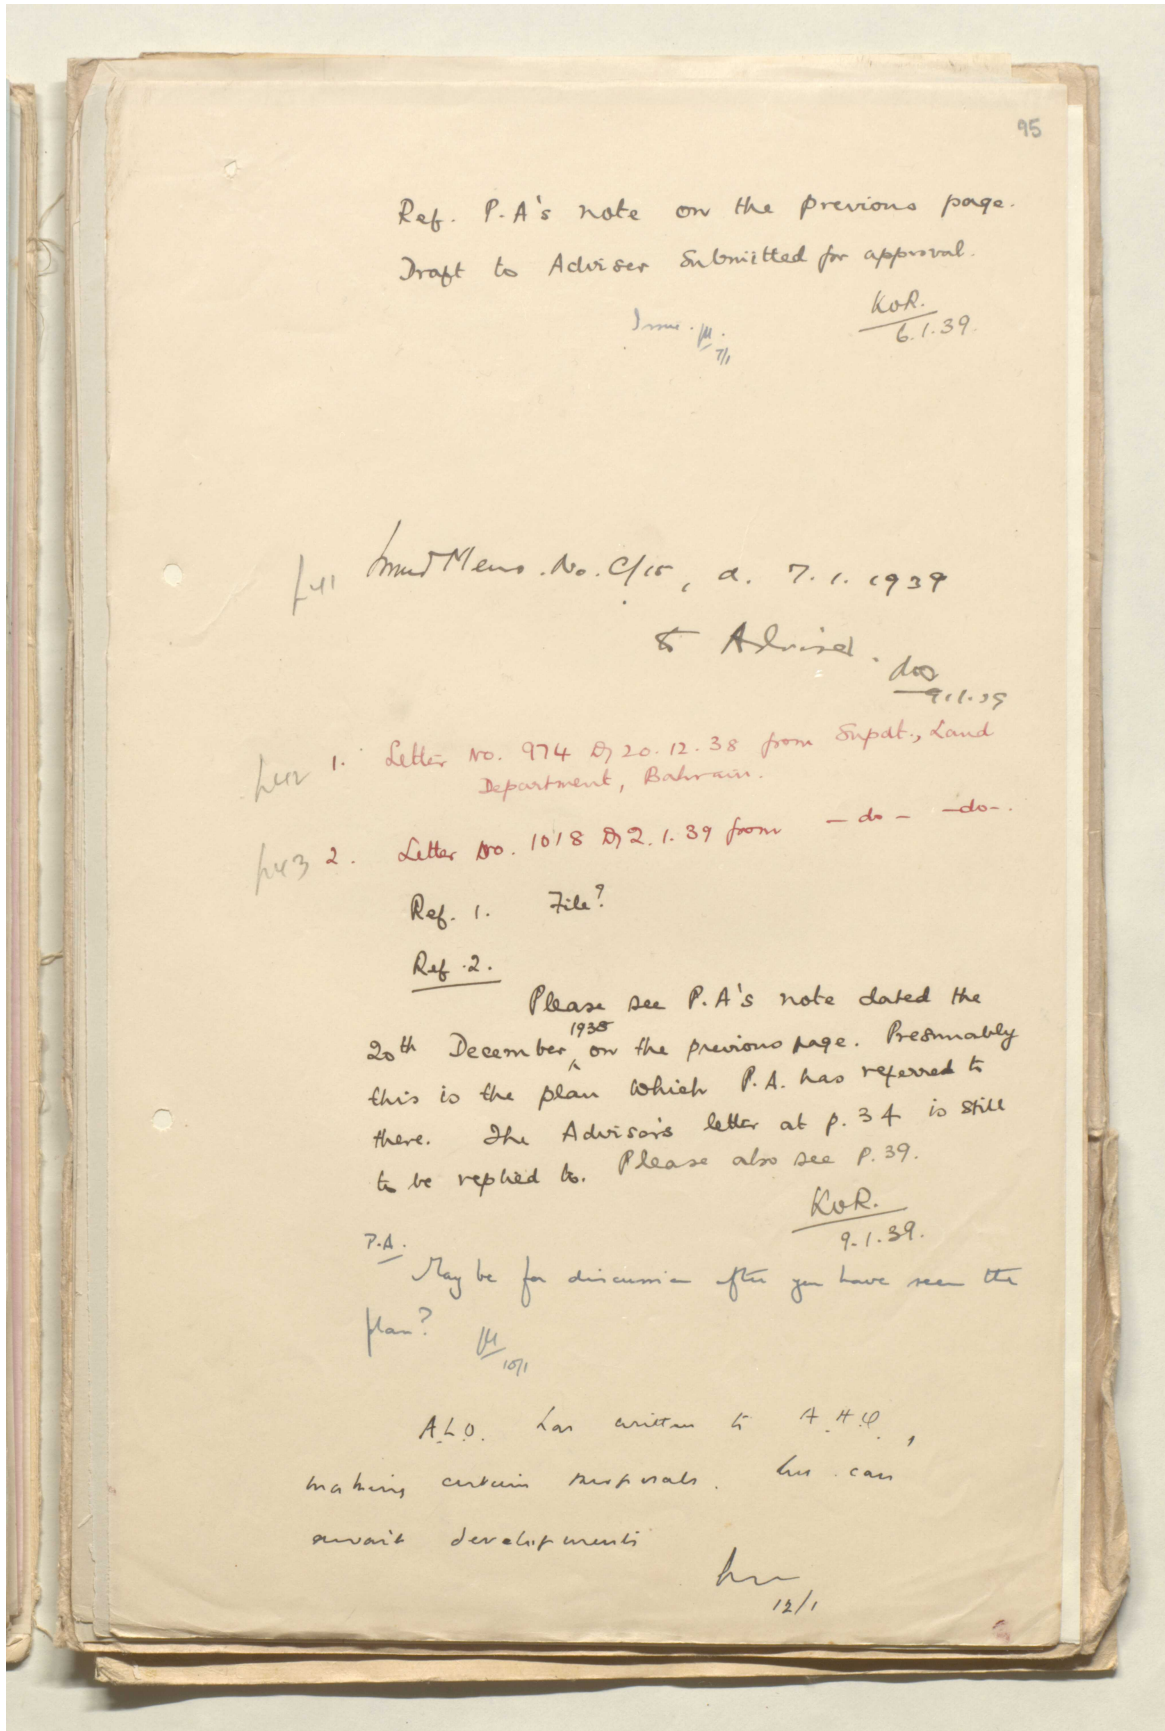 95
Ref. P.A's note on the previous page.
Draft to Adviser submitted for approval.
KoR.
6.1.39.
Issue.
7/1
p41 Issued Memo. No. C/15, d. 7.1.1939
to Adviser.
9.1.39
p42 1. Letter No. 974 D/ 20.12.38 from Supdt., Land
Department, Bahrain.
p43 2. Letter No. 1018 D/ 2.1.39 from - do - - do -.
Ref. 1. File?
Ref. 2.
Please see P.A's note dated the
1938
20th December ^ on the previous page. Presumably
this is the plan which P.A. has referred to
there. The Adviser's letter at p. 34 is still
to be replied to. Please also see p. 39.
KoR.
9.1.39.
P.A.
May be for discussion after you have seen the
plan?
10/1
A.L.O. has written to A.H.Q.,
making certain proposals. We can
await developments
12/1